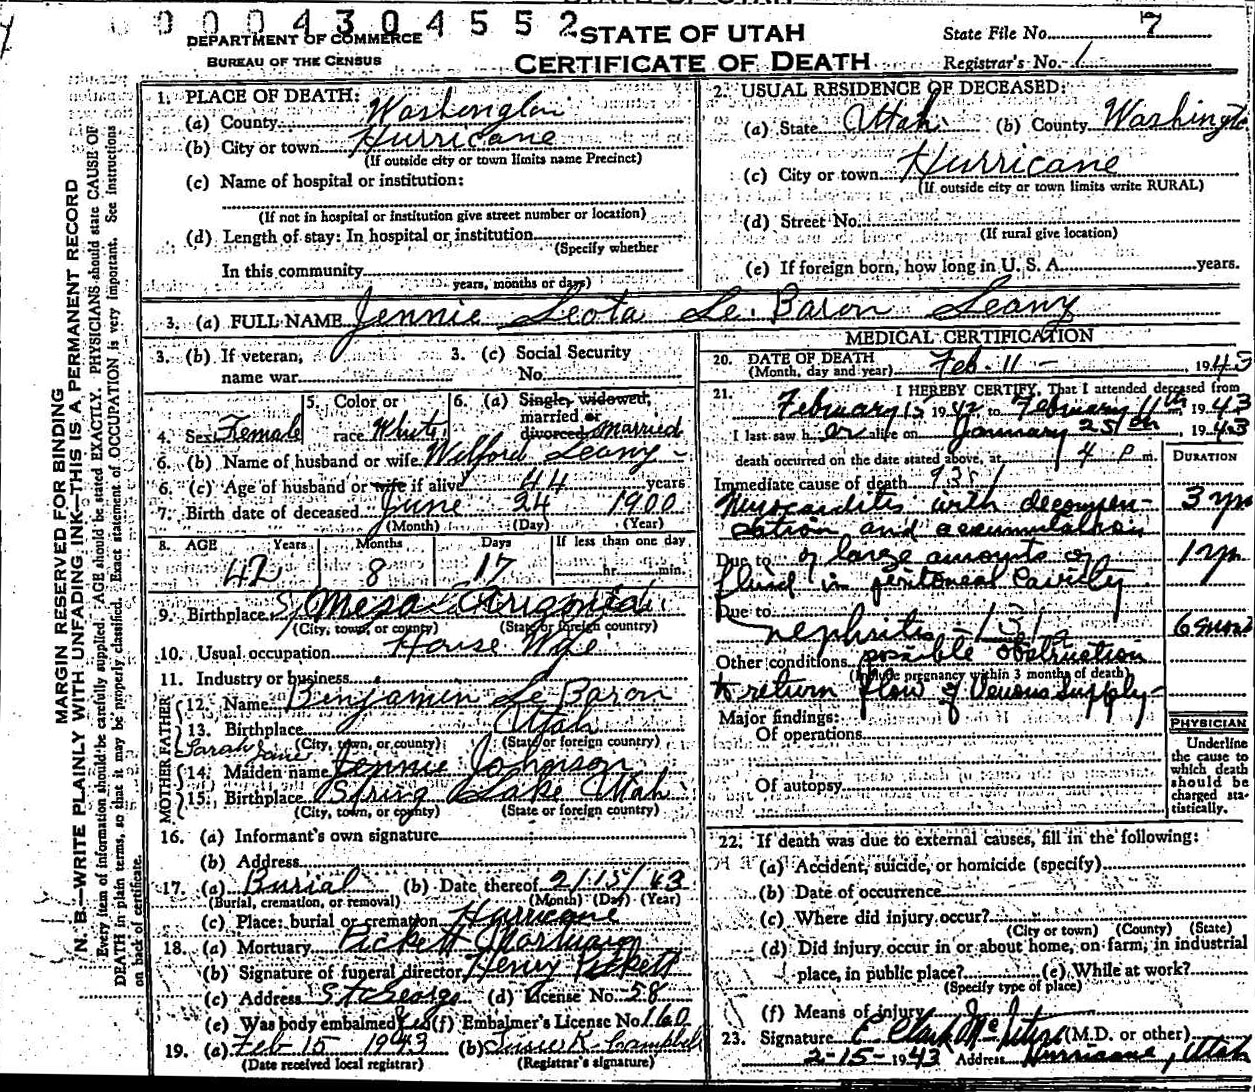 0 0 0 4 3 0 4 5 5 2
DEPARTMENT OF COMMERCE
BUREAU OF THE CENSUS
STATE OF UTAH
CERTIFICATE OF DEATH
State File No. 7
Registrar's No. 1
MARGIN RESERVED FOR BINDING
N. B.—WRITE PLAINLY WITH UNFADING INK—THIS IS A PERMANENT RECORD
Every item of information should be carefully supplied. AGE should be stated EXACTLY. PHYSICIANS should state CAUSE OF
DEATH in plain terms, so that it may be properly classified. Exact statement of OCCUPATION is very important. See Instructions
on back of certificate.
1. PLACE OF DEATH:
(a) County Washington
(b) City or town Hurricane
(If outside city or town limits name Precinct)
(c) Name of hospital or institution:
(If not in hospital or institution give street number or location)
(d) Length of stay: In hospital or institution
(Specify whether
In this community
years, months or days)
2. USUAL RESIDENCE OF DECEASED:
(a) State Utah (b) County Washingt
(c) City or town Hurricane
(If outside city or town limits write RURAL)
(d) Street No.
(If rural give location)
(e) If foreign born, how long in U. S. A. years.
3. (a) FULL NAME Jennie Leota Le Baron Leany
3. (b) If veteran, name war
3. (c) Social Security No.
4. Sex Female
5. Color or race White
6. (a) Single, widowed, married or divorced married
6. (b) Name of husband or wife Wilford Leany
6. (c) Age of husband or wife if alive 44 years
7. Birth date of deceased June 24 1900
(Month) (Day) (Year)
8. AGE Years Months Days If less than one day
42 8 17 hr. min.
9. Birthplace Mesa Arizona
(City, town, or county) (State or foreign country)
10. Usual occupation House Wife
11. Industry or business
FATHER
12. Name Benjamin Le Baron
13. Birthplace Utah
(City, town, or county) (State or foreign country)
MOTHER
Sarah Jane
14. Maiden name Jennie Johnson
15. Birthplace Spring Lake Utah
(City, town, or county) (State or foreign country)
16. (a) Informant's own signature
(b) Address
17. (a) Burial (b) Date thereof 2/15/43
(Burial, cremation, or removal) (Month) (Day) (Year)
(c) Place: burial or cremation Hurricane
18. (a) Mortuary Pickett Mortuary
(b) Signature of funeral director Henry Pickett
(c) Address St George (d) License No. 58
(e) Was body embalmed Yes (f) Embalmer's License No. 160
19. (a) Feb 15 1943 (b) Campbell
(Date received local registrar) (Registrar's signature)
MEDICAL CERTIFICATION
20. DATE OF DEATH
(Month, day and year) Feb. 11 - 1943
21. I HEREBY CERTIFY, That I attended deceased from
February 1942 to February 11th 1943
I last saw her alive on January 25th 1943
death occurred on the date stated above, at 4 P m.
DURATION
Immediate cause of death
Myocarditis with decompen- 3 yrs
sation and accumulation
Due to of large amounts of 1 yr
fluid in peritoneal Cavity
Due to
nephritis - 131 6 mos
Other conditions possible obstruction
(Include pregnancy within 3 months of death)
to return flow of Venous Supply -
Major findings:
Of operations
Of autopsy
PHYSICIAN
Underline
the cause to
which death
should be
charged sta-
tistically.
22. If death was due to external causes, fill in the following:
(a) Accident, suicide, or homicide (specify)
(b) Date of occurrence
(c) Where did injury occur?
(City or town) (County) (State)
(d) Did injury occur in or about home, on farm, in industrial
place, in public place? (e) While at work?
(Specify type of place)
(f) Means of injury
23. Signature C. Clark McIntire (M.D. or other)
2-15-1943 Address Hurricane, Utah